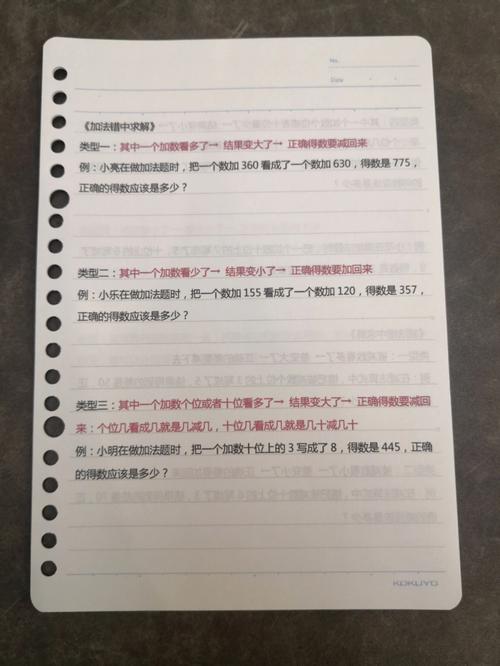 No.
Date
《加法错中求解》
类型一：其中一个加数看多了→ 结果变大了→ 正确得数要减回来
例：小亮在做加法题时，把一个数加 360 看成了一个数加 630，得数是 775，
正确的得数应该是多少？
类型二：其中一个加数看少了→ 结果变小了→ 正确得数要加回来
例：小乐在做加法题时，把一个数加 155 看成了一个数加 120，得数是 357，
正确的得数应该是多少？
类型三：其中一个加数个位或者十位看多了→ 结果变大了→ 正确得数要减回
来：个位几看成几就是几减几，十位几看成几就是几十减几十
例：小明在做加法题时，把一个加数十位上的 3 写成了 8，得数是 445，正确
的得数应该是多少？
KOKUYO